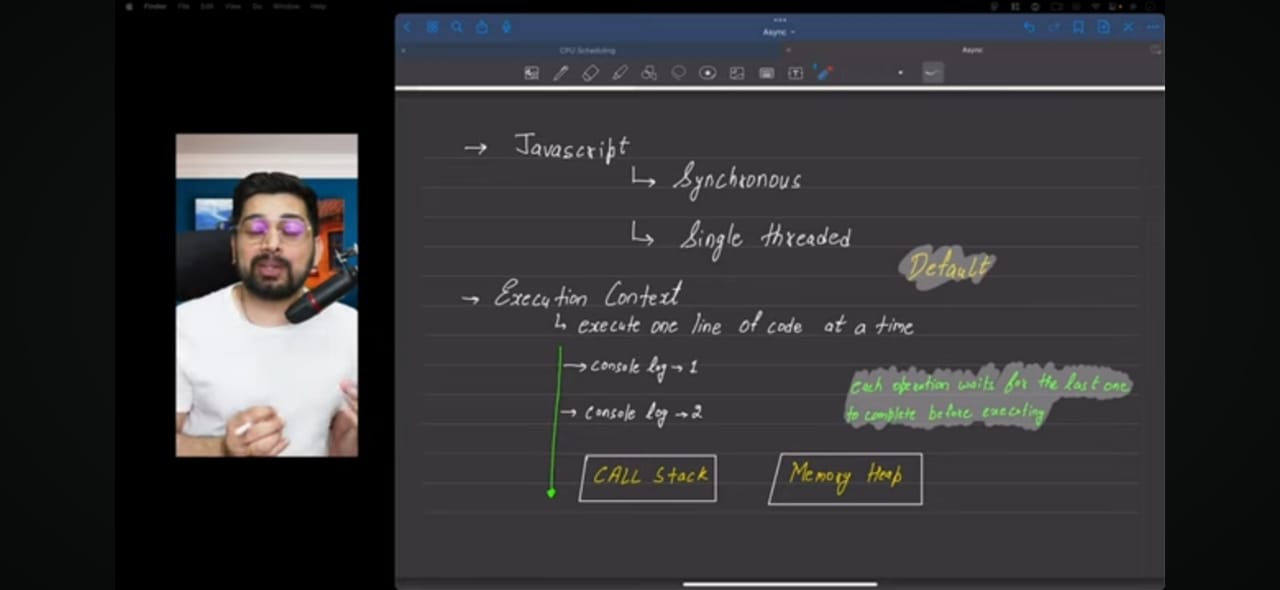 Finder File Edit View Go Window Help
Async
CPU Scheduling
Async
→ Javascript
↳ Synchronous
↳ Single threaded
Default
→ Execution Context
↳ execute one line of code at a time
→ console log → 1
→ console log → 2
each operation waits for the last one
to complete before executing
CALL Stack
Memory Heap